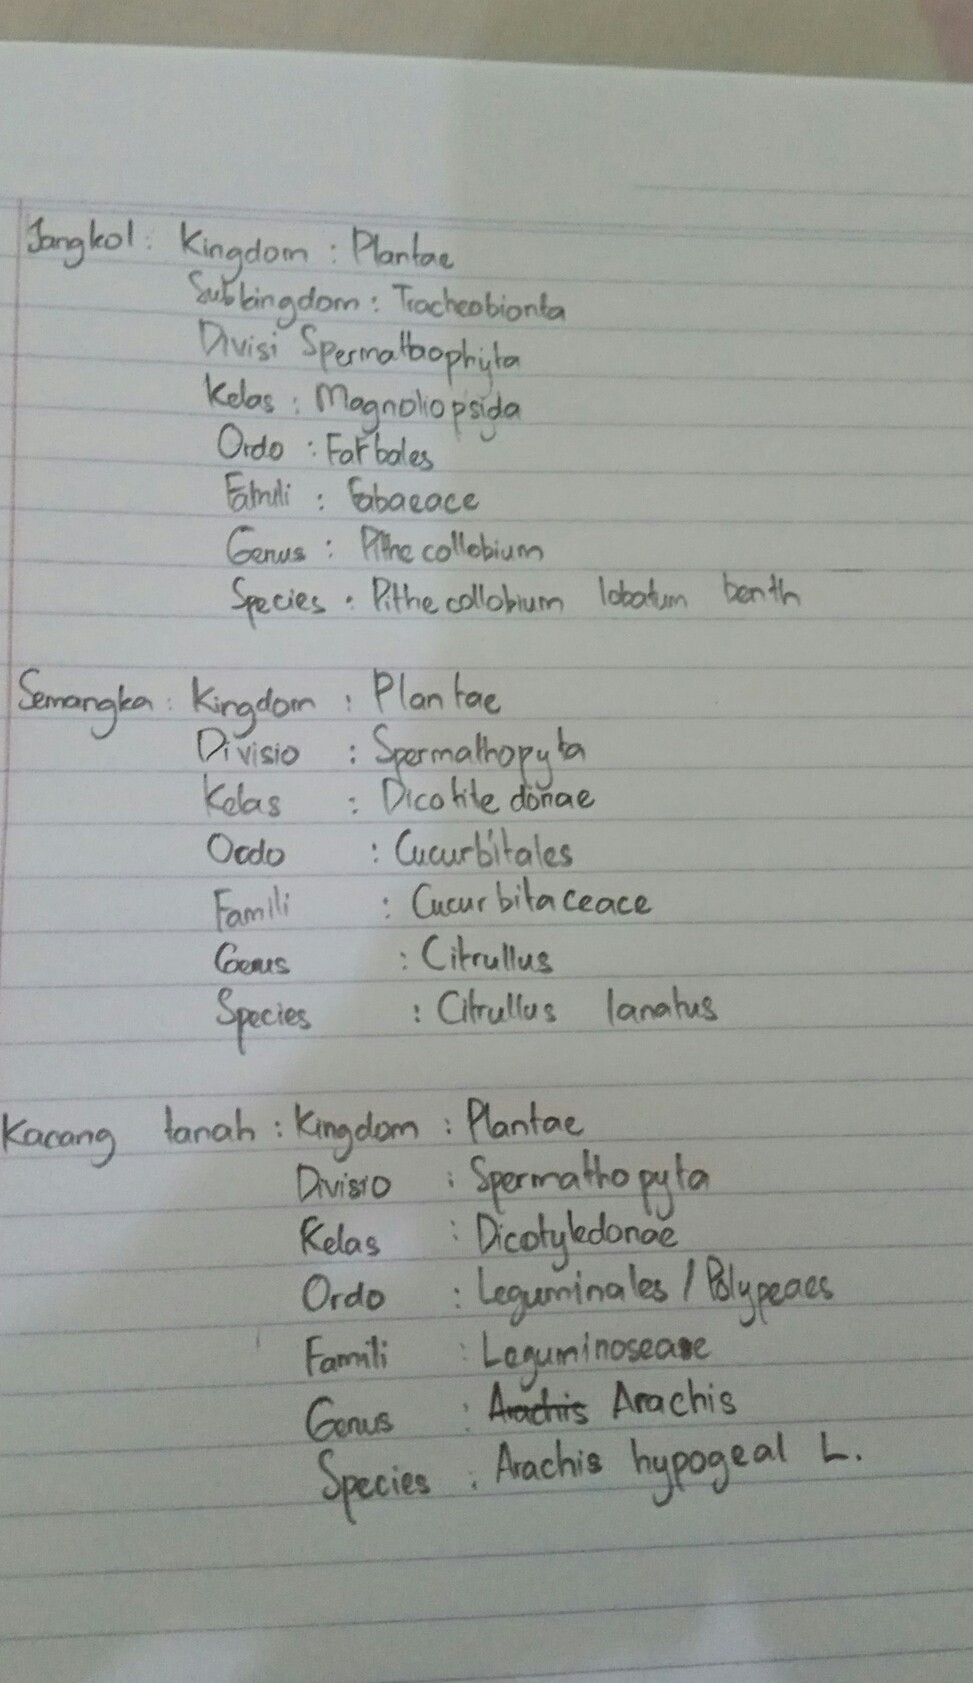 Jangkol : Kingdom : Plantae
Subkingdom : Tracheobionta
Divisi Spermathophyta
Kelas : Magnoliopsida
Ordo : Farbales
Famili : Fabaeace
Genus : Pithecollobium
Species : Pithecollobium lobatum benth
Semangka : Kingdom : Plantae
Divisio : Spermathopyta
Kelas : Dicotiledonae
Ordo : Cucurbitales
Famili : Cucurbitaceace
Genus : Citrullus
Species : Citrullus lanatus
Kacang tanah : Kingdom : Plantae
Divisio : Spermathopyta
Kelas : Dicotyledonae
Ordo : Leguminales / Polypeaes
Famili : Leguminoseae
Genus : Arachis Arachis
Species : Arachis hypogeal L.